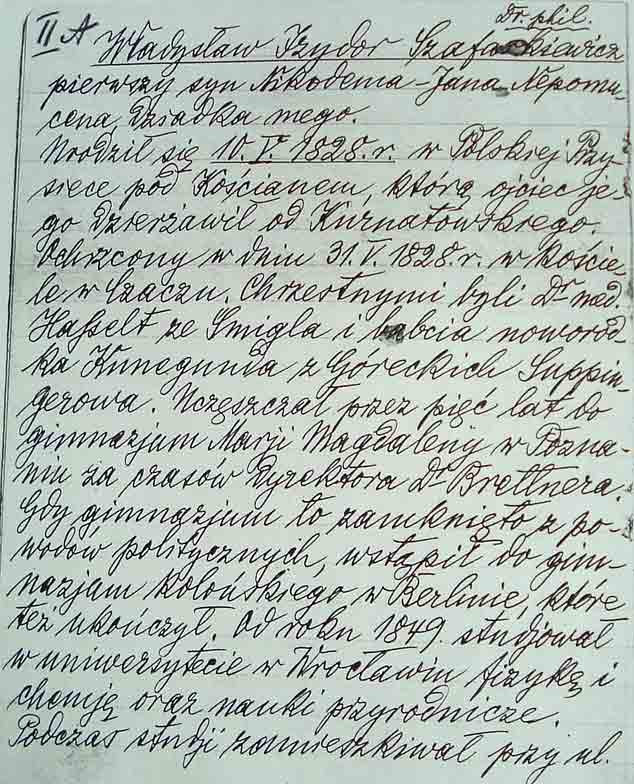 Dr. phil.
II A Władysław Izydor Szafarkiewicz
pierwszy syn Nikodema-Jana Nepomu-
cena, dziadka mego.
Urodził się 10. V. 1828. r. w Polskiej Przy-
siece pod Kościanem, którą ojciec je-
go dzierżawił od Kurnatowskiego.
Ochrzcony w dniu 31. V. 1828. r. w koście-
le w Czaczu. Chrzestnymi byli Dr med.
Hasselt ze Śmigla i babcia noworod-
ka Kunegunda z Góreckich Suppin-
gerowa. Uczęszczał przez pięć lat do
gimnazjum Marji Magdaleny w Pozna-
niu za czasów dyrektora Dr Brettnera.
Gdy gimnazjum to zamknięto z po-
wodów politycznych, wstąpił do gim-
nazjum kolońskiego w Berlinie, które
też ukończył. Od roku 1849. studjował
w uniwersytecie w Wrocławiu fizykę i
chemję oraz nauki przyrodnicze.
Podczas studji zamieszkiwał przy ul.